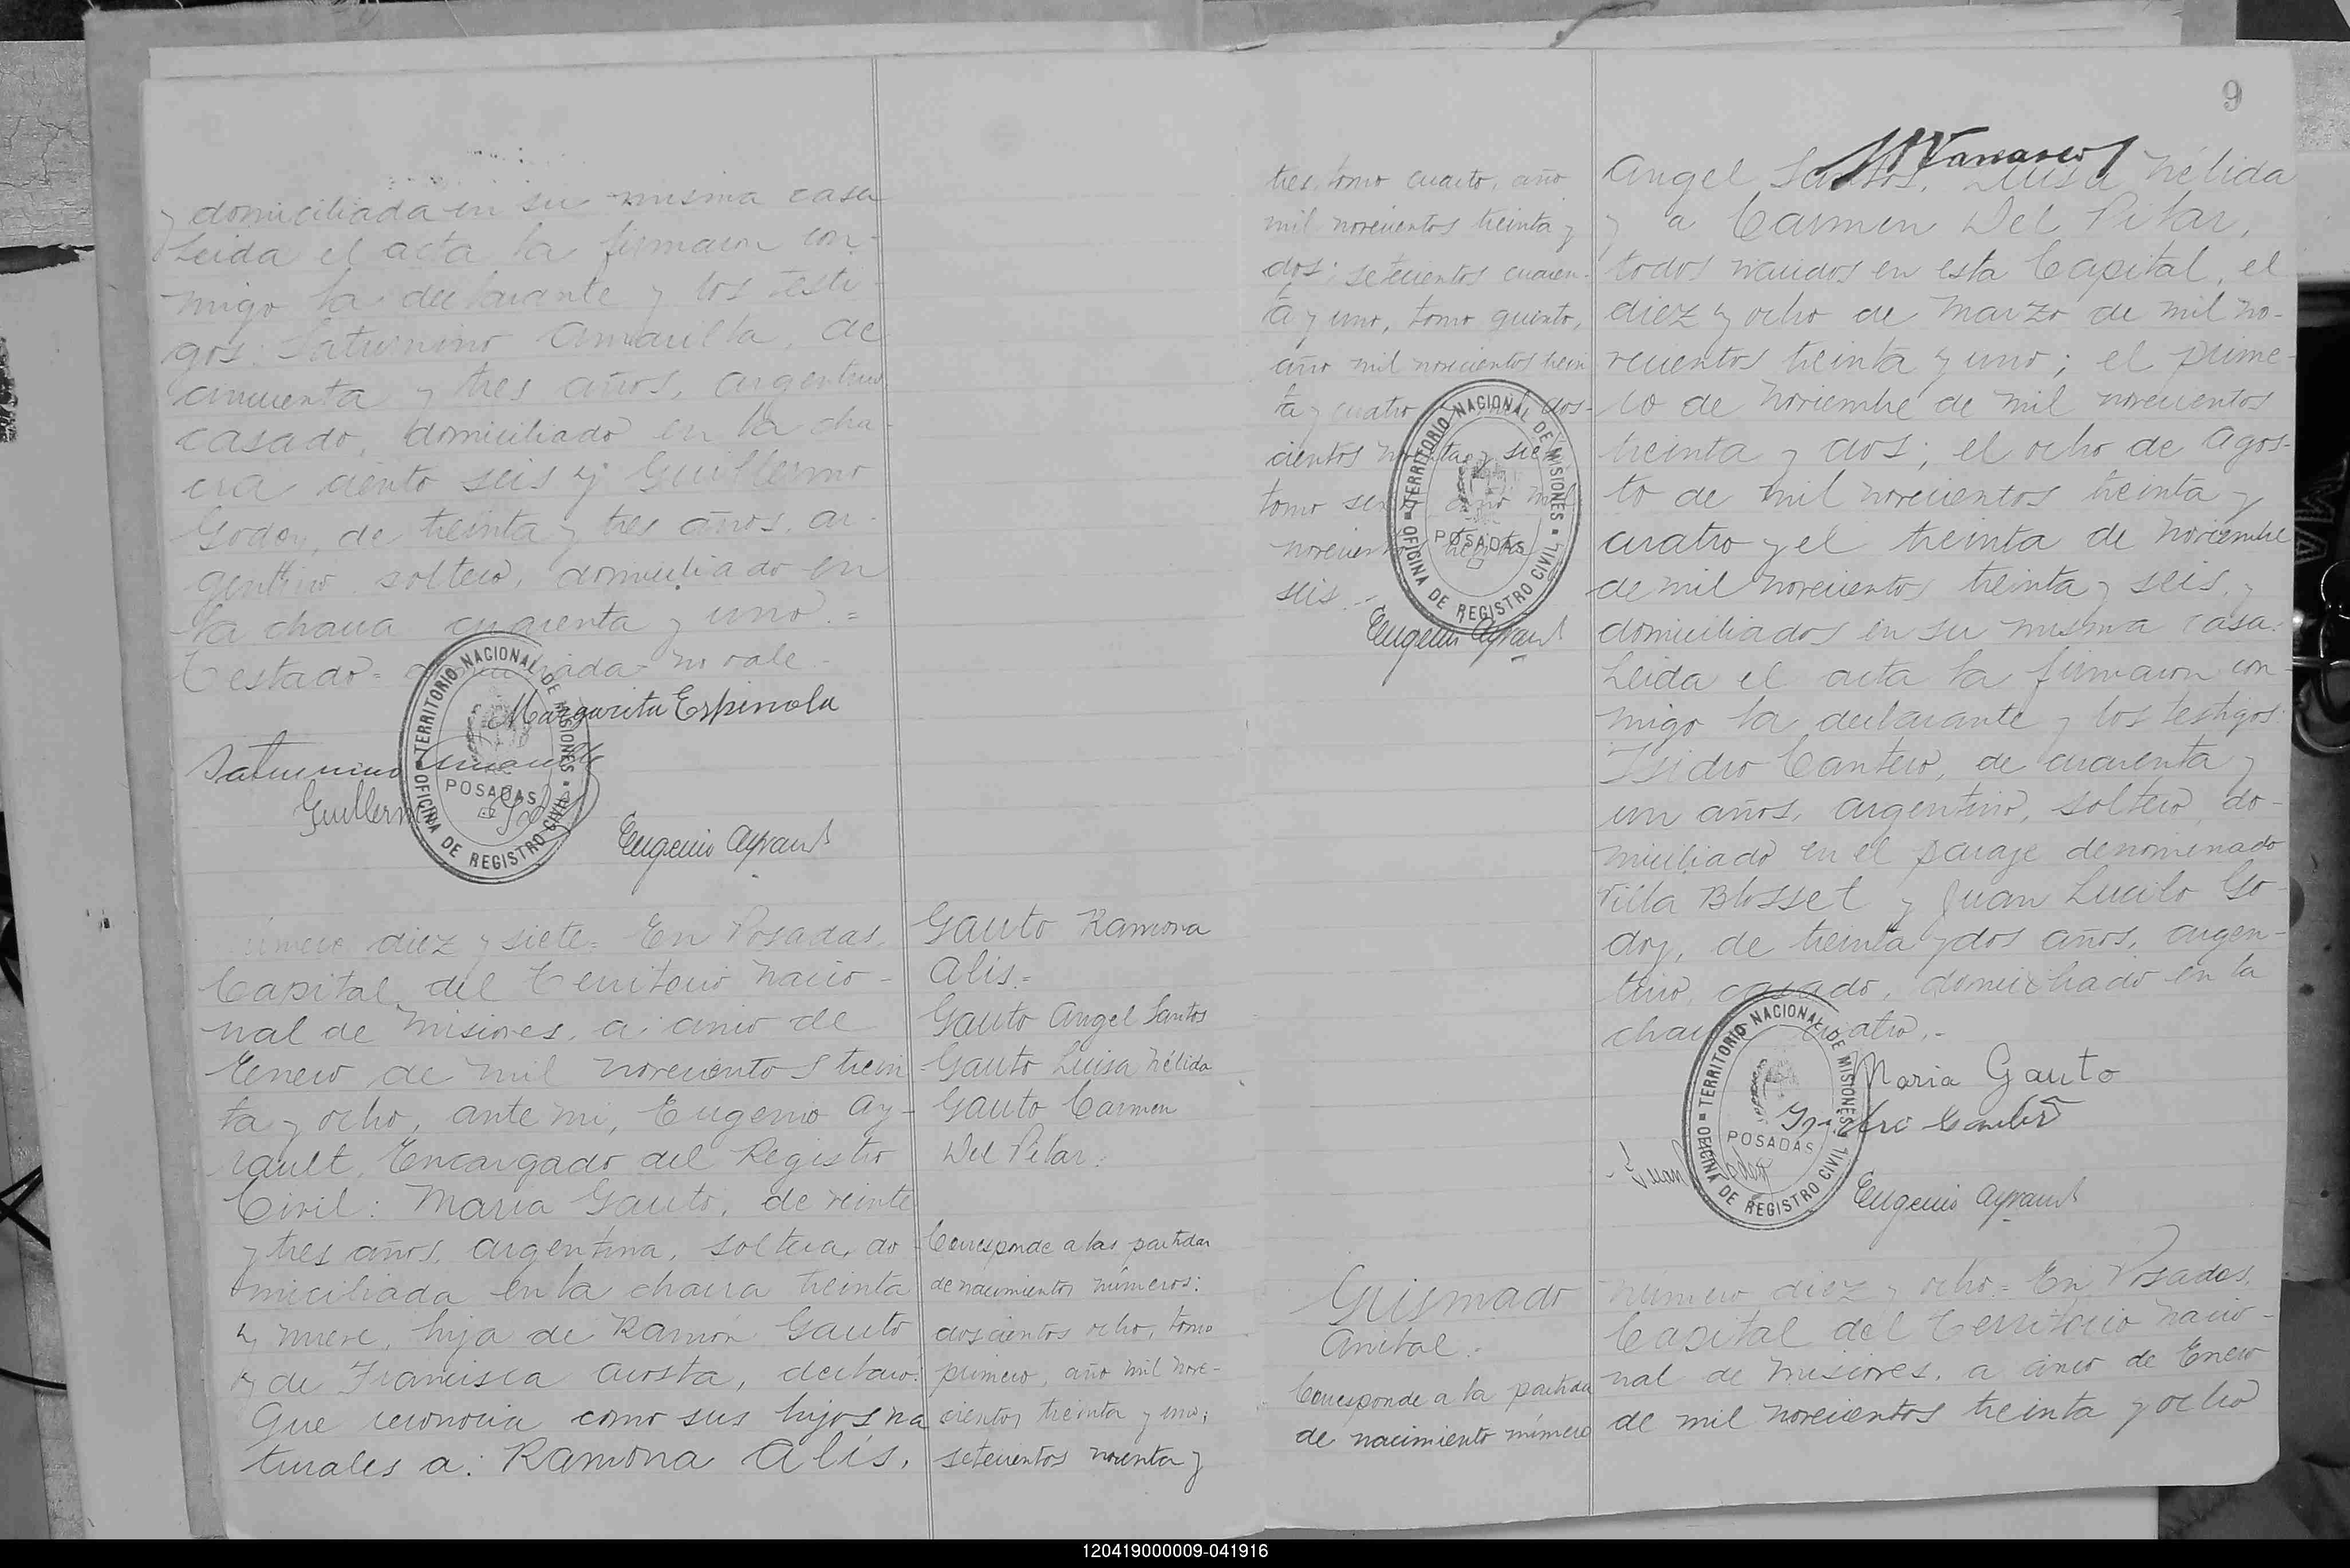 y domiciliada en su misma casa
Leida el acta la firmaron con-
migo la declarante y los testi-
gos: Saturnino Amarilla, de
cincuenta y tres años, argentino
casado, domiciliado en la cha-
cra ciento seis y Guillermo
Godoy, de treinta y tres años, ar-
gentino soltero, domiciliado en
la chacra cuarenta y uno.=
Testado= no vale-
Margarita Espinola
Saturnino Amarilla
Guillermo Godoy
Eugenio Ayrault
TERRITORIO NACIONAL DE MISIONES
POSADAS
OFICINA DE REGISTRO CIVIL
número diez y siete= En Posadas,
Capital del Territorio Nacio-
nal de Misiones, a cinco de
Enero de mil novecientos trein
ta y ocho, ante mi, Eugenio Ay-
rault, Encargado del Registro
Civil: Maria Gauto, de veinte
y tres años, argentina, soltera, do
miciliada en la chacra treinta
y nueve, hija de Ramón Gauto
y de Francisca Acosta, declaro:
Que reconocia como sus hijos na
turales a: Ramona Alis,
Gauto Ramona
Alis.=
Gauto Angel Santos
Gauto Luisa Nélida
Gauto Carmen
Del Pilar.
Corresponde a las partidas
de nacimientos números:
doscientos ocho, tomo
primero, año mil nove-
cientos treinta y uno;
setecientos noventa y
9
tres, tomo cuarto, año
mil novecientos treinta y
dos; setecientos cuaren-
ta y uno, tomo quinto,
año mil novecientos trein
ta y cuatro y mil dos-
cientos noventa y siete
tomo sexto año mil
novecientos treinta y
seis.-
TERRITORIO NACIONAL DE MISIONES
POSADAS
OFICINA DE REGISTRO CIVIL
Eugenio Ayrault
Angel Santos, Luisa Nélida
y a Carmen Del Pilar,
todos nacidos en esta Capital, el
diez y ocho de Marzo de mil no-
vecientos treinta y uno; el prime-
ro de Noviembre de mil novecientos
treinta y dos; el ocho de Agos-
to de mil novecientos treinta y
cuatro y el treinta de Noviembre
de mil novecientos treinta y seis, y
domiciliados en su misma casa.
Leida el acta la firmaron con
migo la declarante y los testigos:
Isidro Cantero, de cuarenta y
un años, argentino, soltero, do-
miciliado en el paraje denominado
Villa Blosset y Juan Lucilo Go-
doy, de treinta y dos años, argen-
tino, casado, domiciliado en la
chacra cuatro.-
Maria Gauto
Isidro Cantero
Juan Godoy
Eugenio Ayrault
TERRITORIO NACIONAL DE MISIONES
POSADAS
OFICINA DE REGISTRO CIVIL
Guismado
Anibal.-
Corresponde a la partida
de nacimiento número
número diez y ocho= En Posadas,
Capital del Territorio Nacio-
nal de Misiones, a cinco de Enero
de mil novecientos treinta y ocho
120419000009-041916